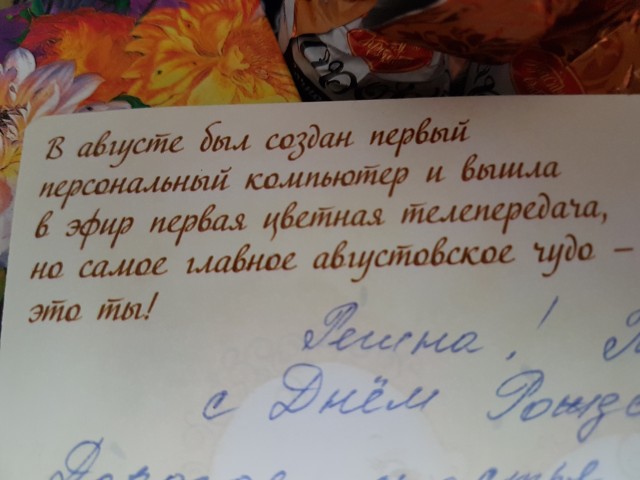 В августе был создан первый
персональный компьютер и вышла
в эфир первая цветная телепередача,
но самое главное августовское чудо –
это ты!
Регина!
с Днём